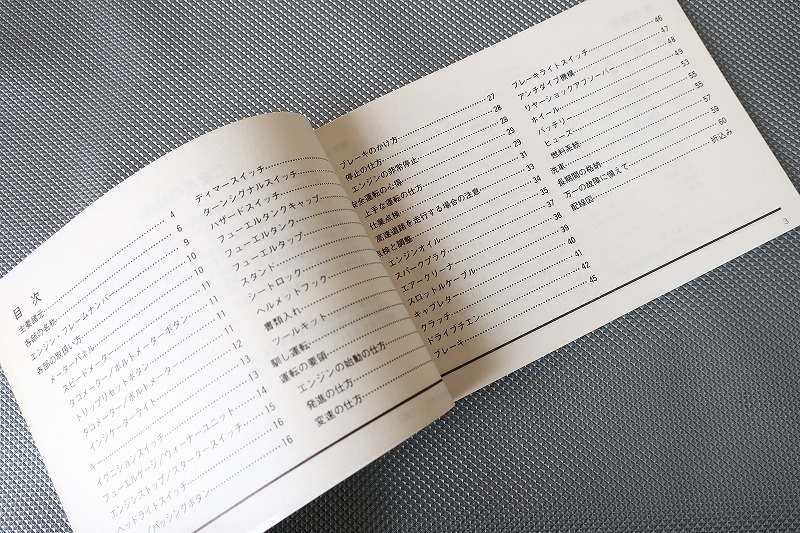 目次
主要諸元 4
各部の名称 6
エンジン・フレームナンバー 9
各部の取扱い方 10
メーターパネル 10
スピードメーター 11
タコメーター/ボルトメーターボタン 11
トリップリセットボタン 11
タコメーター/ボルトメーター 12
インジケーターライト 13
キー 13
イグニションスイッチ 14
フューエルゲージ/ウォーナーユニット 15
エンジンストップ/スタータースイッチ 16
ヘッドライトスイッチ 16
/パッシングボタン
ディマースイッチ
ターンシグナルスイッチ
ハザードスイッチ
フューエルタンクキャップ
フューエルタンク
フューエルタップ
スタンド
シートロック
ヘルメットフック
書類入れ
ツールキット
馴し運転
運転の要領
エンジンの始動の仕方
発進の仕方
変速の仕方
ブレーキのかけ方 27
停止の仕方 28
エンジンの非常停止 28
安全運転の心得 29
上手な運転の仕方 29
仕業点検 31
高速道路を走行する場合の注意 33
点検と調整 34
エンジンオイル 35
スパークプラグ 37
エアークリーナ 38
スロットルケーブル 39
キャブレター 40
クラッチ 41
ドライブチェン 42
ブレーキ 45
ブレーキライトスイッチ 46
アンチダイブ機構 47
リヤーショックアブソーバー 48
ホイール 49
バッテリー 53
ヒューズ 55
燃料系統 55
洗車 57
長期間の格納 59
万一の故障に備えて 60
配線図 折込み
3